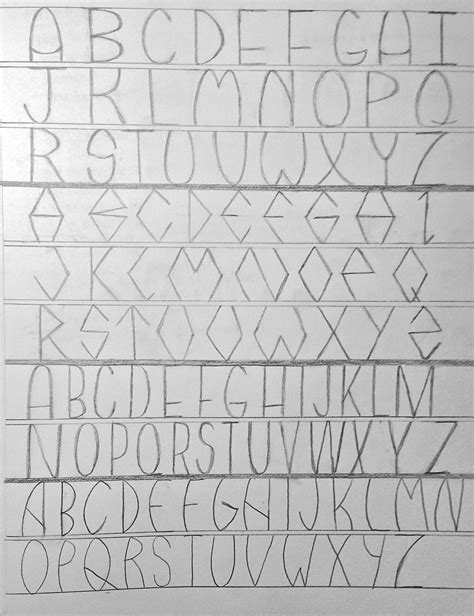 ABCDEFGHI
JKLMNOPQ
RSTUVWXYZ
ABCDEFGHI
JKLMNOPQ
RSTUVWXYZ
ABCDEFGHIJKLM
NOPQRSTUVWXYZ
ABCDEFGHIJKLMN
OPQRSTUVWXYZ